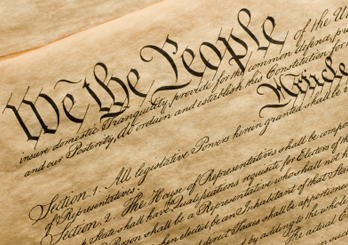 We the People of the U
insure domestic Tranquility, provide for the common defence, pr
and our Posterity, do ordain and establish this Constitution for
Article
Section 1. All legislative Powers herein granted shall be
of Representatives.
Section 2. The House of Representatives shall be compo
State shall have Qualifications requisite for Electors of the
Person shall be a Representative who shall not h
when elected be an Inhabitant of that Sta
and direct Taxes shall be apportioned
be added to the whole
The actual